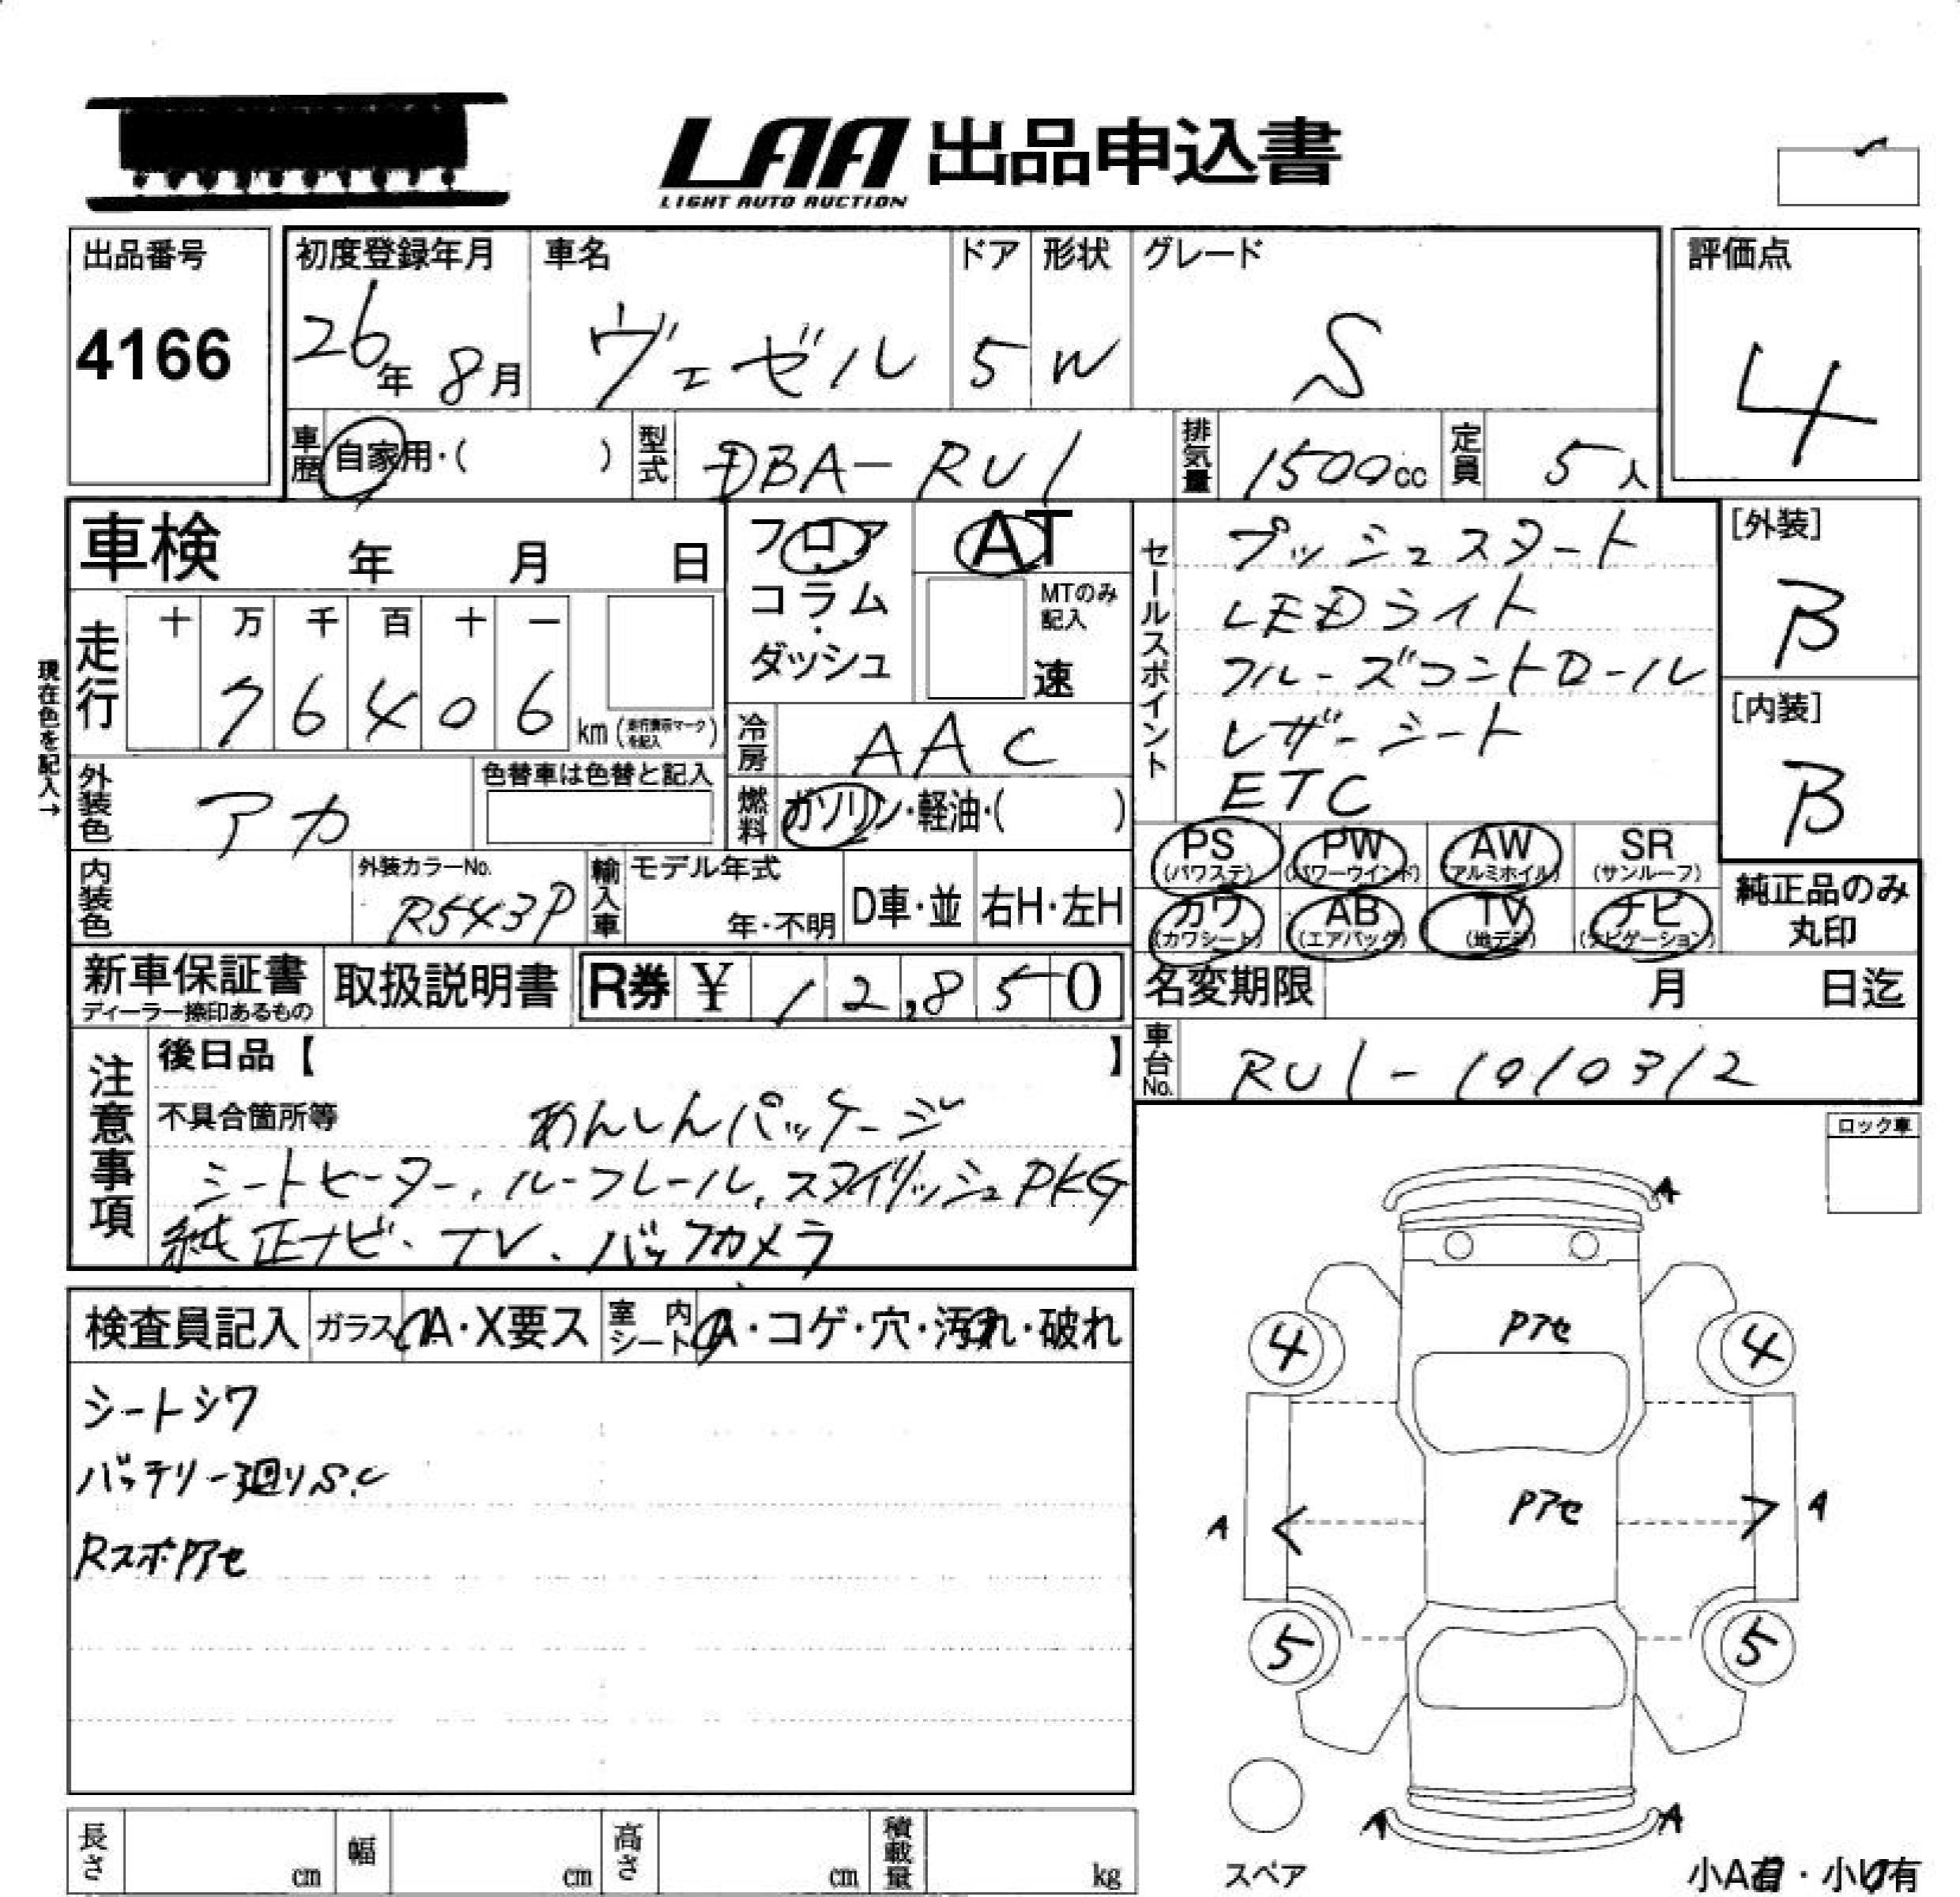 LAA 出品申込書
LIGHT AUTO AUCTION
出品番号
4166
初度登録年月
26年 8月
車名
ヴェゼル
ドア
5
形状
W
グレード
S
評価点
4
車歴 自家用・( )
型式 DBA-RU1
排気量 1500cc
定員 5人
車検 年 月 日
フロア
コラム
・
ダッシュ
AT
MTのみ
記入
速
現在色を記入→
走行
十 万 千 百 十 一
7 6 4 0 6 km (走行表示マークを記入)
冷房 AAC
外装色 アカ
色替車は色替と記入
燃料 ガソリン・軽油・( )
内装色
外装カラーNo.
R543P
輸入車
モデル年式
年・不明
D車・並
右H・左H
セールスポイント
プッシュスタート
LEDライト
クルーズコントロール
レザーシート
ETC
[外装]
B
[内装]
B
PS (パワステ)
PW (パワーウインド)
AW (アルミホイル)
SR (サンルーフ)
カワ (カワシート)
AB (エアバッグ)
TV (地デジ)
ナビ (ナビゲーション)
純正品のみ
丸印
新車保証書
ディーラー捺印あるもの
取扱説明書
R券 ¥ 12,850
名変期限 月 日迄
車台No. RU1-1010312
注意事項
後日品【 】
不具合箇所等 あんしんパッケージ
シートヒーター、ルーフレール、スタイリッシュPKG
純正ナビ、TV、バックカメラ
ロック車
検査員記入
ガラス A・X要ス
室内シート A・コゲ・穴・汚れ・破れ
シートシワ
バッテリー廻りS.C
RスポPアセ
A
Pアセ
4
4
Pアセ
A
A
5
5
A
A
スペア
小A有・小U有
長さ cm
幅 cm
高さ cm
積載量 kg